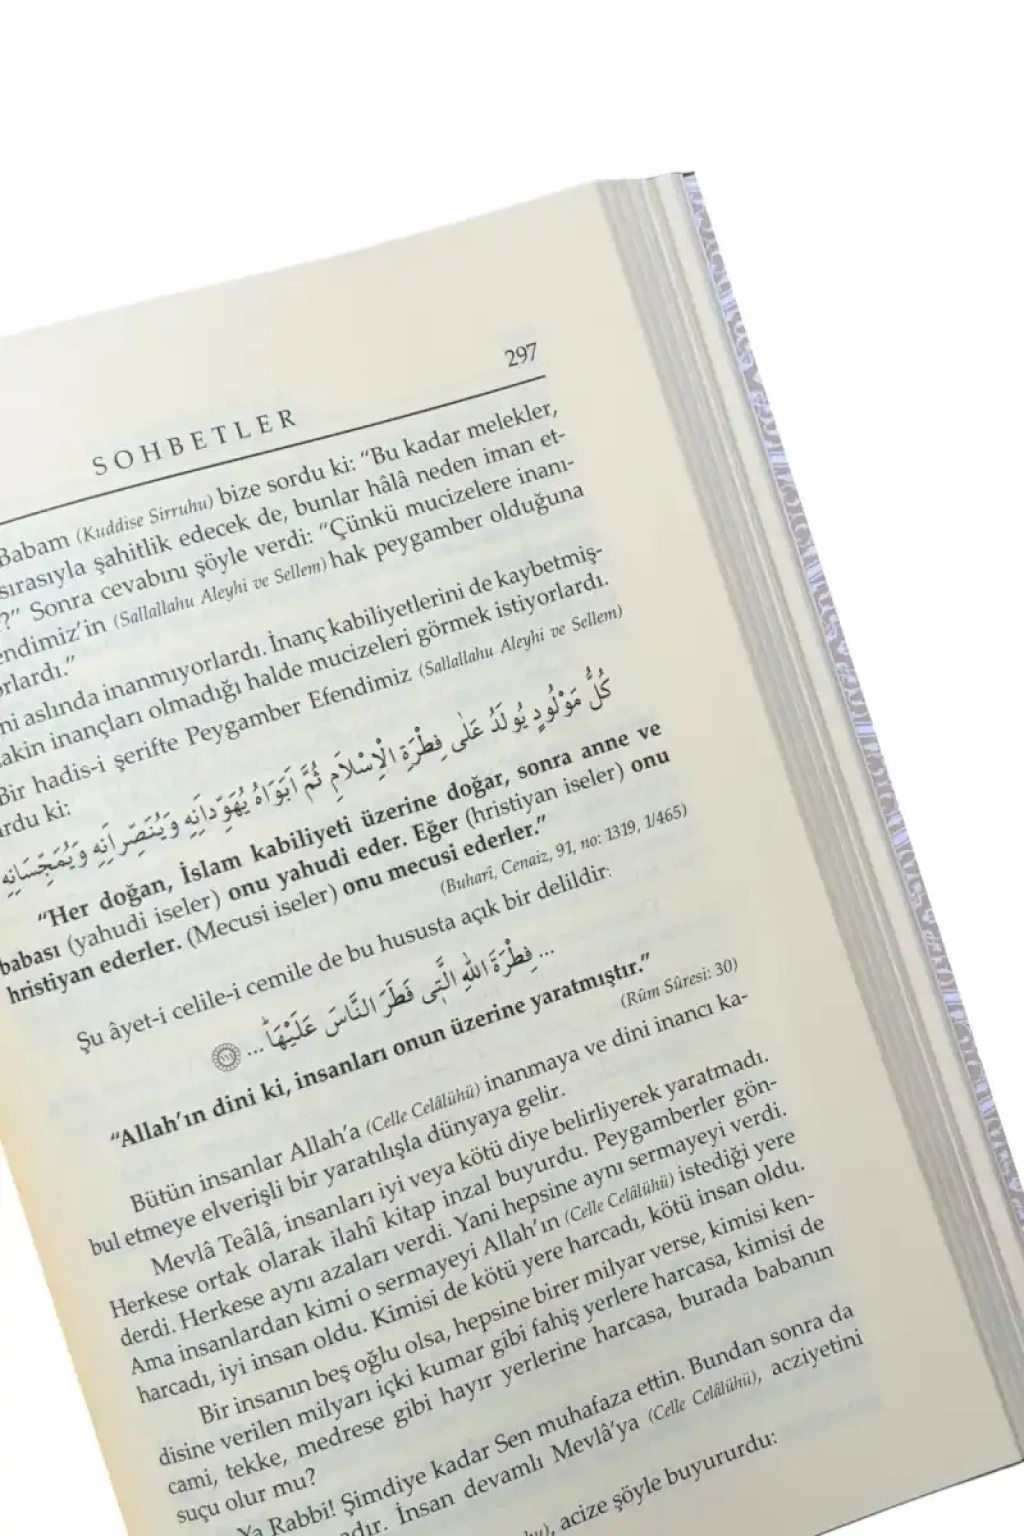 297
SOHBETLER
Babam (Kuddise Sirruhu) bize sordu ki: “Bu kadar melekler,
sırasıyla şahitlik edecek de, bunlar hâlâ neden iman et-
?” Sonra cevabını şöyle verdi: “Çünkü mucizelere inanı-
endimiz’in (Sallallahu Aleyhi ve Sellem) hak peygamber olduğuna
orlardı.”
ni aslında inanmıyorlardı. İnanç kabiliyetlerini de kaybetmiş-
akin inançları olmadığı halde mucizeleri görmek istiyorlardı.
Bir hadis-i şerifte Peygamber Efendimiz (Sallallahu Aleyhi ve Sellem)
urdu ki:
كُلُّ مَوْلُودٍ يُولَدُ عَلٰى فِطْرَةِ الْاِسْلَامِ ثُمَّ اَبَوَاهُ يُهَوِّدَانِهِ وَيُنَصِّرَانِهِ وَيُمَجِّسَانِهِ
“Her doğan, İslam kabiliyeti üzerine doğar, sonra anne ve
babası (yahudi iseler) onu yahudi eder. Eğer (hristiyan iseler) onu
hristiyan ederler. (Mecusi iseler) onu mecusi ederler.”
(Buharî, Cenaiz, 91, no: 1319, 1/465)
Şu âyet-i celile-i cemile de bu hususta açık bir delildir:
... فِطْرَةَ اللّٰهِ الَّتٖى فَطَرَ النَّاسَ عَلَيْهَاۜ ...
“Allah’ın dini ki, insanları onun üzerine yaratmıştır.”
(Rûm Sûresi: 30)
Bütün insanlar Allah’a (Celle Celâlühü) inanmaya ve dini inancı ka-
bul etmeye elverişli bir yaratılışla dünyaya gelir.
Mevlâ Teâlâ, insanları iyi veya kötü diye belirliyerek yaratmadı.
Herkese ortak olarak ilahî kitap inzal buyurdu. Peygamberler gön-
derdi. Herkese aynı azaları verdi. Yani hepsine aynı sermayeyi verdi.
Ama insanlardan kimi o sermayeyi Allah’ın (Celle Celâlühü) istediği yere
harcadı, iyi insan oldu. Kimisi de kötü yere harcadı, kötü insan oldu.
Bir insanın beş oğlu olsa, hepsine birer milyar verse, kimisi ken-
disine verilen milyarı içki kumar gibi fahiş yerlere harcasa, kimisi de
cami, tekke, medrese gibi hayır yerlerine harcasa, burada babanın
suçu olur mu?
Ya Rabbi! Şimdiye kadar Sen muhafaza ettin. Bundan sonra da
adır. İnsan devamlı Mevlâ’ya (Celle Celâlühü), acziyetini
hu), acize şöyle buyururdu: